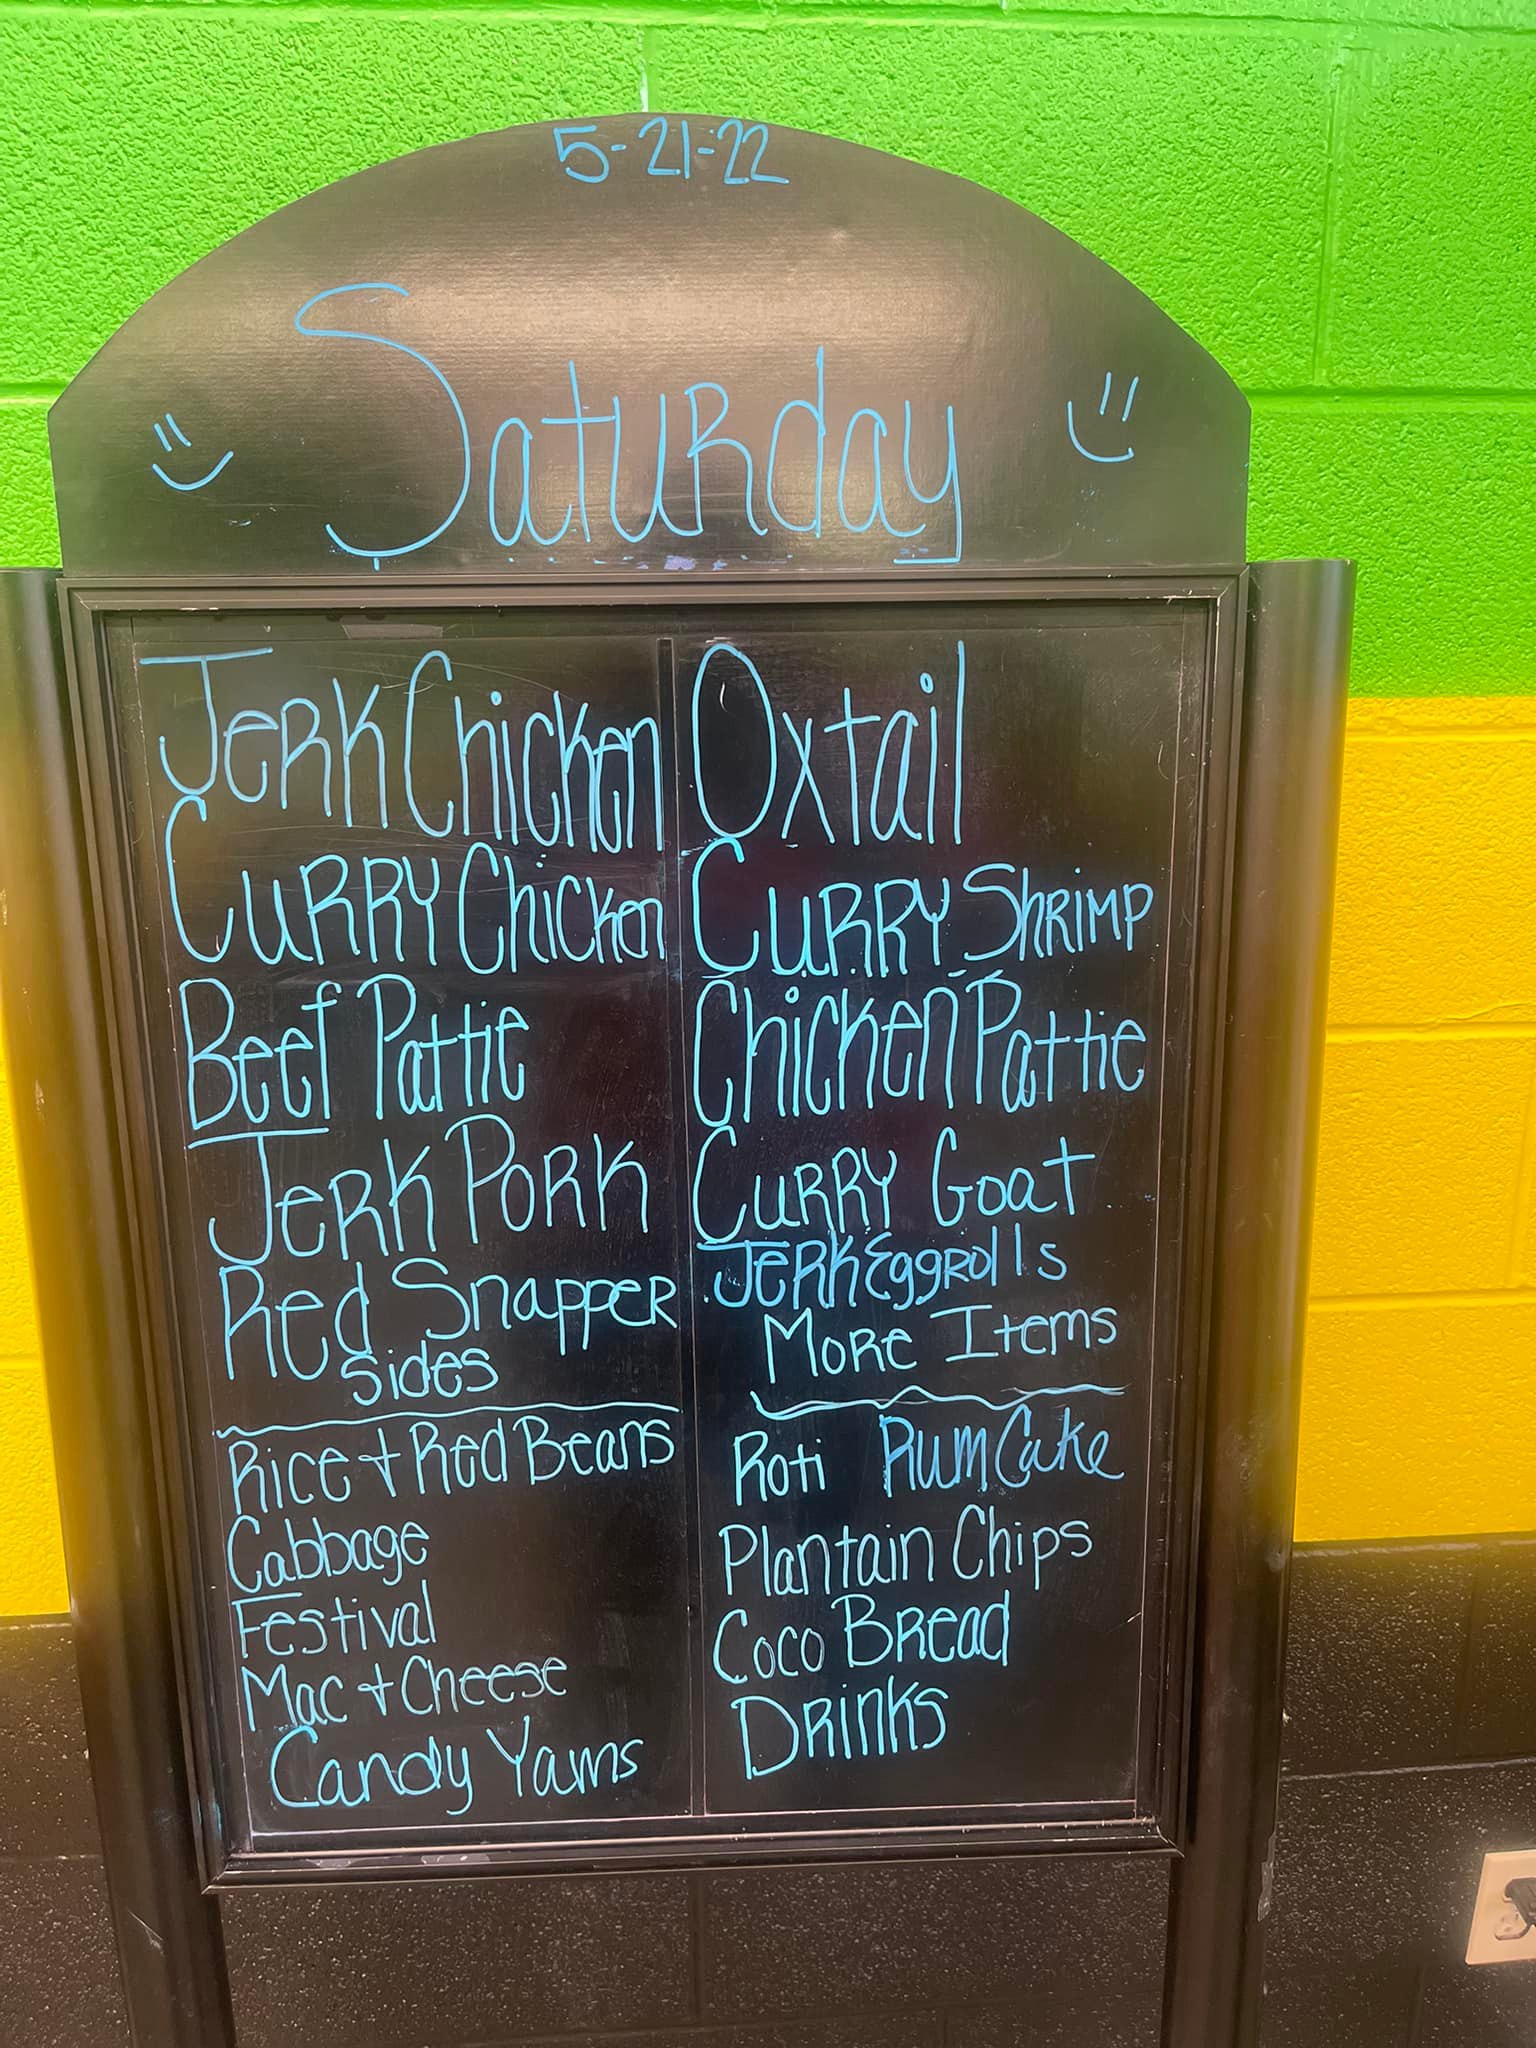 5-21-22
Saturday
Jerk Chicken
Curry Chicken
Beef Pattie
Jerk Pork
Red Snapper
Sides
Rice + Red Beans
Cabbage
Festival
Mac + Cheese
Candy Yams
Oxtail
Curry Shrimp
Chicken Pattie
Curry Goat
Jerk Eggrolls
More Items
Roti Rum Cake
Plantain Chips
Coco Bread
Drinks